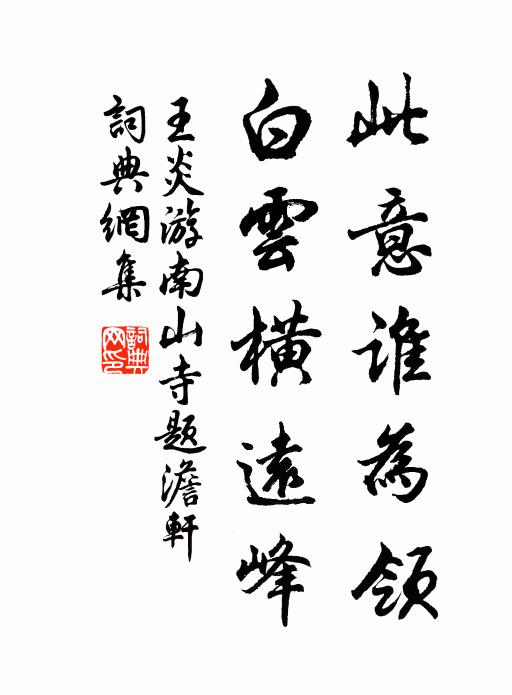 此意誰為領
白雲橫遠峰
王炎游南山寺題澹軒
詞典網集
詞典網印